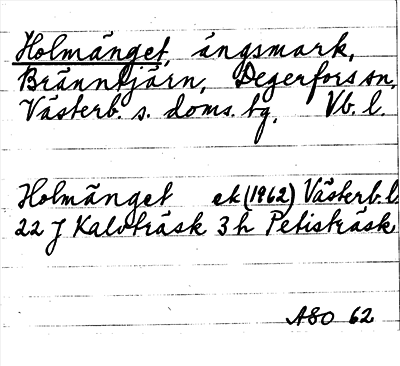 Holmänget, ängsmark,
Bränntjärn, Degerfors sn,
Västerb. s. doms. tg, Vb. l.
Holmänget ek (1962) Västerb. l
22 J Kalvträsk 3 h Petisträsk
ASO 62